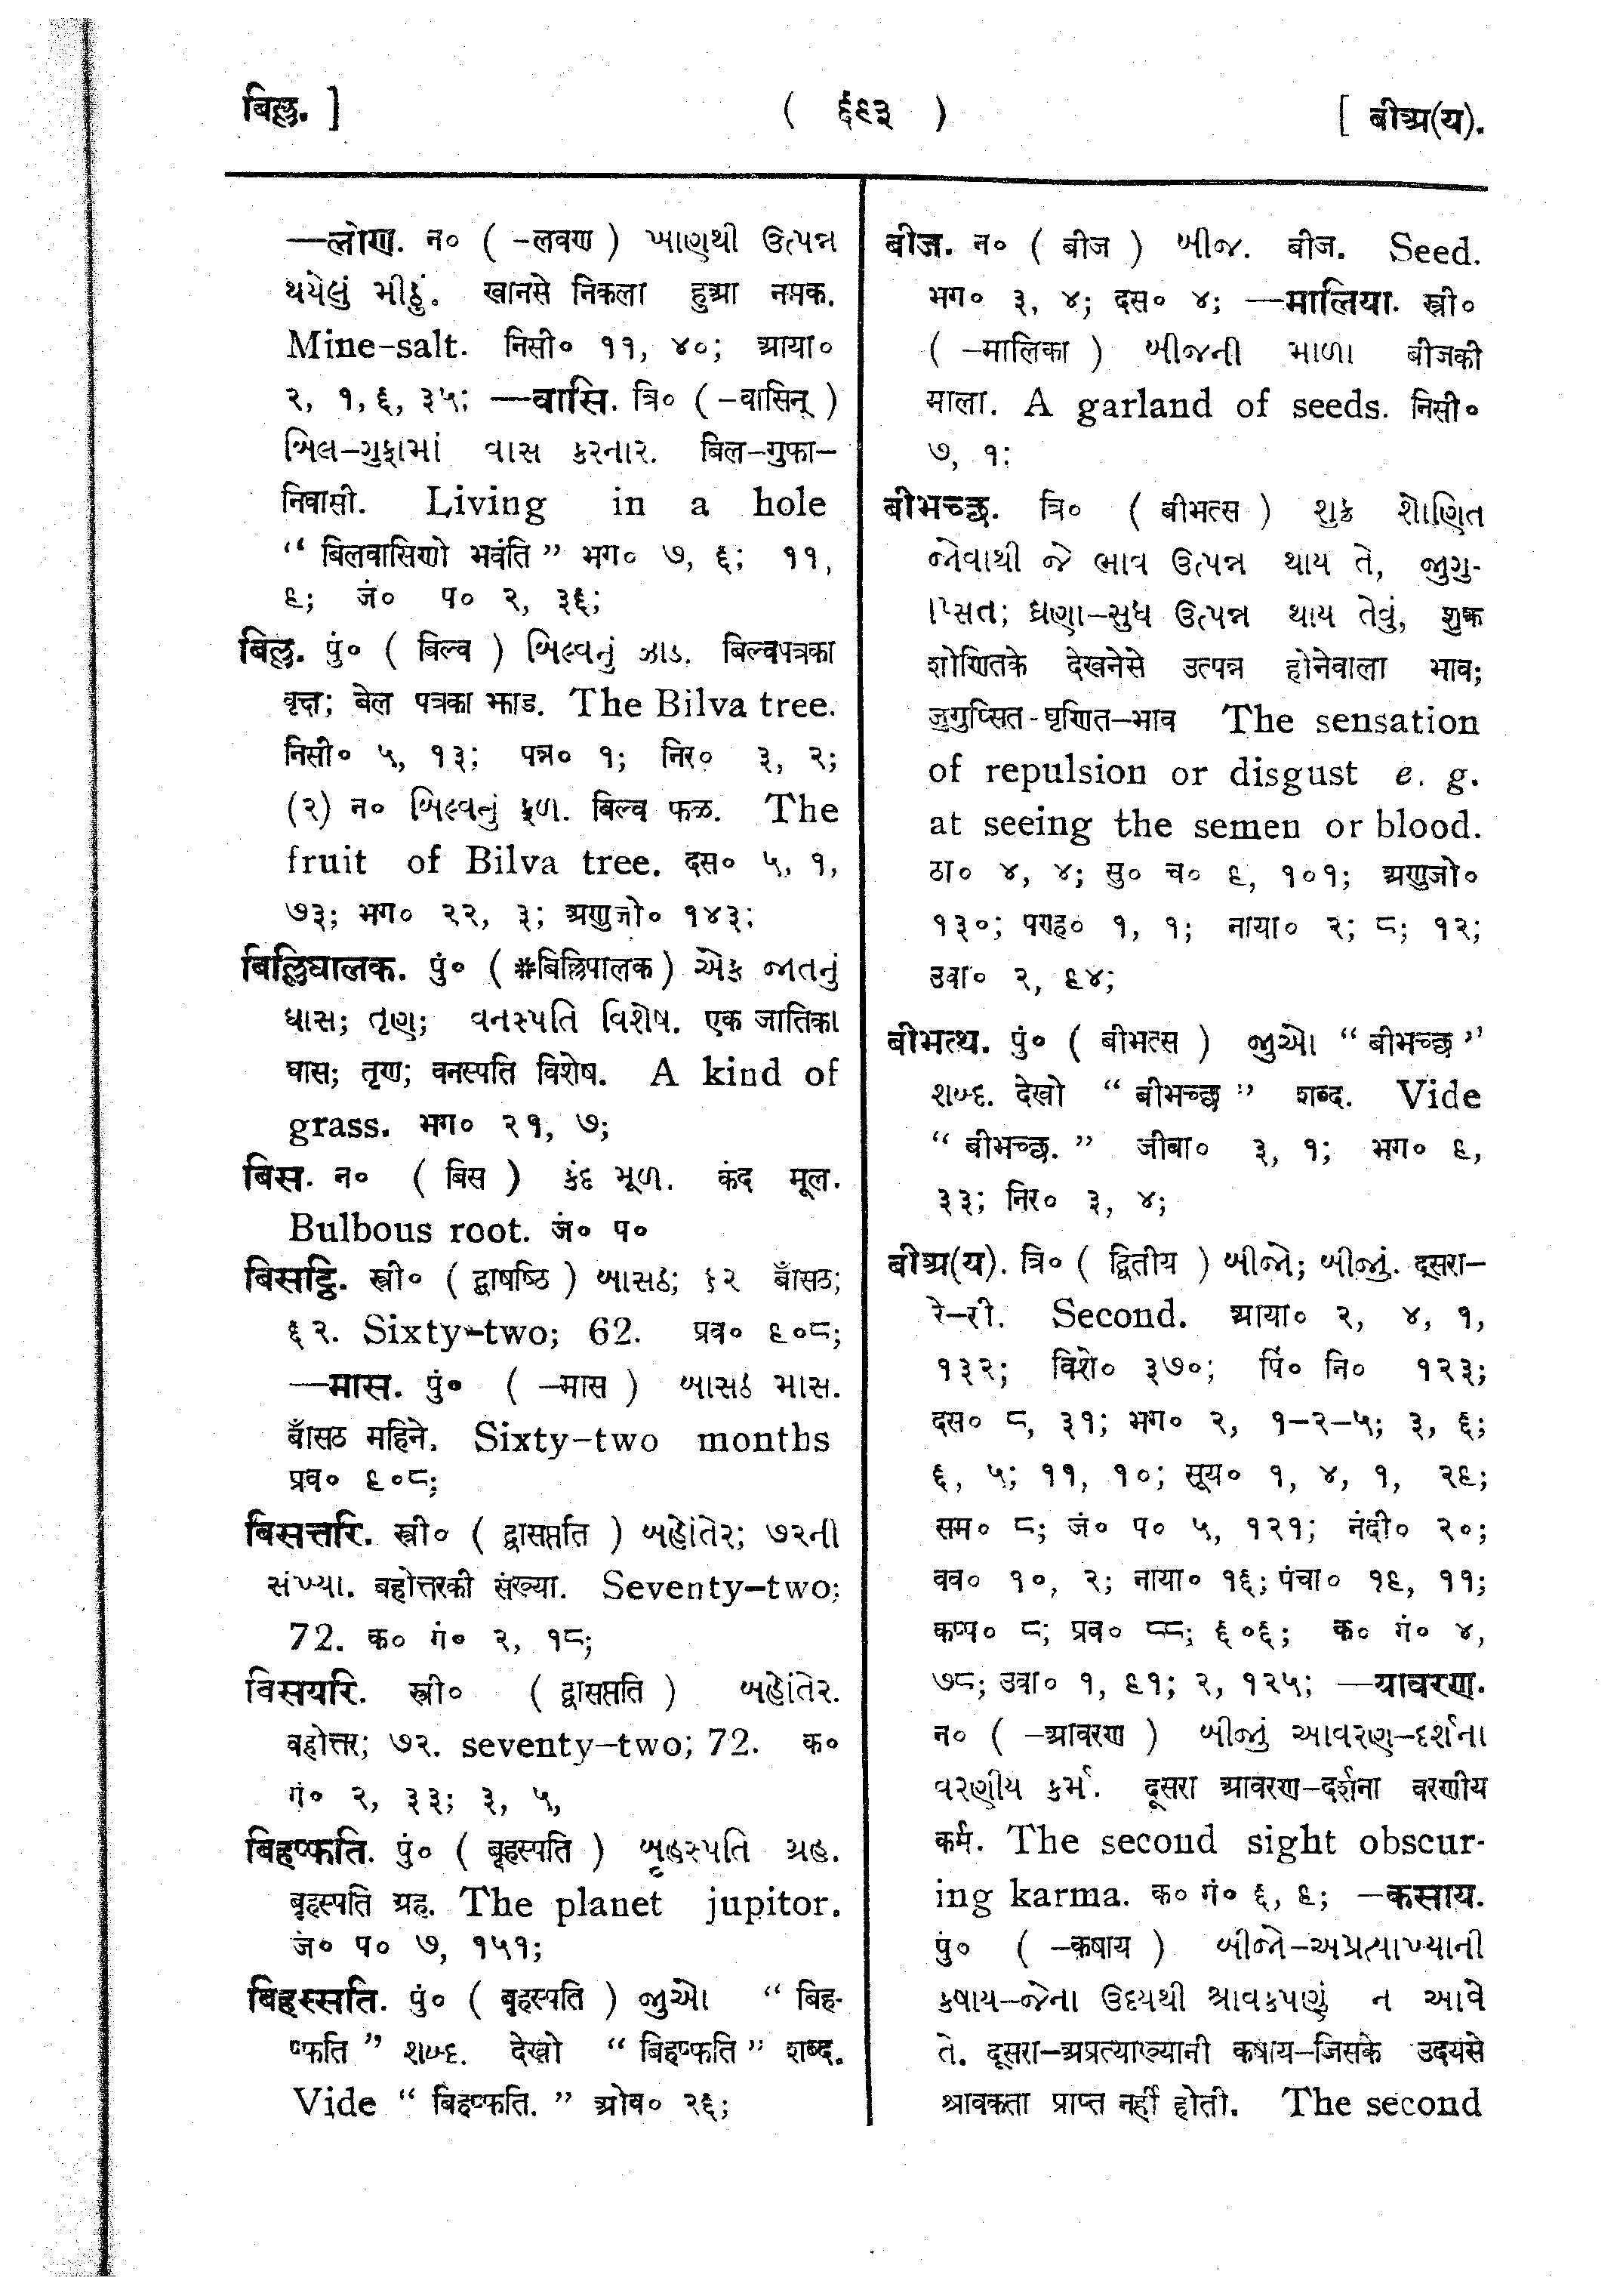 बिल्लु. ]
( ६९३ )
[ बीअ(य).
—लोण. न० ( -लवण ) ખાણથી ઉત્પન્ન
થયેલું મીઠું. खानसे निकला हुआ नमक.
Mine-salt. निसी० ११, ४०; आया०
२, १, ६, ३५; —वासि. त्रि० ( -वासिन् )
બિલ-ગુફામાં વાસ કરનાર. बिल-गुफा-
निवासी. Living in a hole
“ बिलवासिणो भवंति ” भग० ७, ६; ११,
९; जं० प० २, ३६;
बिल्लु. पुं० ( बिल्व ) બિલ્વનું ઝાડ. बिल्वपत्रका
वृक्ष; बेल पत्रका झाड. The Bilva tree.
निसी० ५, १३; पन्न० १; निर० ३, २;
(२) न० બિલ્વનું ફળ. बिल्व फळ. The
fruit of Bilva tree. दस० ५, १,
७३; भग० २२, ३; अणुजो० १४३;
बिल्लिघालक. पुं० ( #बिल्लिपालक ) એક જાતનું
ઘાસ; તૃણ; વનસ્પતિ વિશેષ. एक जातिका
घास; तृण; वनस्पति विशेष. A kind of
grass. भग० २१, ७;
बिस. न० ( बिस ) કંદ મૂળ. कंद मूल.
Bulbous root. जं० प०
बिसट्ठि. स्त्री० ( द्वाषष्ठि ) બાસઠ; ૬૨ बाँसठ;
६२. Sixty-two; 62. प्रव० ९०८;
—मास. पुं० ( -मास ) બાસઠ માસ.
बाँसठ महिने. Sixty-two months
प्रव० ९०८;
बिसत्तरि. स्त्री० ( द्वासप्तति ) બહોંતેર; ૭૨ની
સંખ્યા. बहोत्तरकी संख्या. Seventy-two;
72. क० गं० २, १८;
बिसयरि. स्त्री० ( द्वासप्तति ) બહોંતેર.
बहोत्तर; ७२. seventy-two; 72. क०
गं० २, ३३; ३, ५,
बिहप्फति. पुं० ( बृहस्पति ) બૃહસ્પતિ ગ્રહ.
बृहस्पति ग्रह. The planet jupitor.
जं० प० ७, १५१;
बिहस्सति. पुं० ( बृहस्पति ) જુઓ “ बिह-
प्फति ” શબ્દ. देखो “ बिहप्फति ” शब्द.
Vide “ बिहप्फति. ” ओव० २६;
बीज. न० ( बीज ) બીજ. बीज. Seed.
भग० ३, ४; दस० ४; —मालिया. स्त्री०
( -मालिका ) બીજની માળા बीजकी
माला. A garland of seeds. निसी०
७, १;
बीभच्छ. त्रि० ( बीभत्स ) શુક્ર શોણિત
જોવાથી જે ભાવ ઉત્પન્ન થાય તે, જુગુ-
પ્સિત; ઘ્રણા-સુધ ઉત્પન્ન થાય તેવું, शुक्र
शोणितके देखनेसे उत्पन्न होनेवाला भाव;
जुगुप्सित-घृणित-भाव The sensation
of repulsion or disgust e. g.
at seeing the semen or blood.
ठा० ४, ४; सु० च० ९, १०१; अणुजो०
१३०; पण्ह० १, १; नाया० २; ८; १२;
उवा० २, ९४;
बीभत्थ. पुं० ( बीभत्स ) જુઓ “ बीभच्छ ”
શબ્દ. देखो “ बीभच्छ ” शब्द. Vide
“ बीभच्छ. ” जीबा० ३, १; भग० ९,
३३; निर० ३, ४;
बीअ(य). त्रि० ( द्वितीय ) બીજો; બીજું. दूसरा-
रे-री. Second. आया० २, ४, १,
१३२; विशे० ३७०; पिं० नि० १२३;
दस० ८, ३१; भग० २, १-२-५; ३, ६;
६, ५; ११, १०; सूय० १, ४, १, २९;
सम० ८; जं० प० ५, १२१; नंदी० २०;
वव० १०, २; नाया० १६; पंचा० १९, ११;
कप्प० ८; प्रव० ८८; ६०६; क० गं० ४,
७८; उवा० १, ९१; २, १२५; —यावरण.
न० ( -आवरण ) બીજું આવરણ-દર્શના
વરણીય કર્મ. दूसरा आवरण-दर्शना वरणीय
कर्म. The second sight obscur-
ing karma. क० गं० ६, ९; —कसाय.
पुं० ( -कषाय ) બીજો-અપ્રત્યાખ્યાની
કષાય-જેના ઉદયથી શ્રાવકપણું ન આવે
તે. दूसरा-अप्रत्याख्यानी कषाय-जिसके उदयसे
श्रावकता प्राप्त नहीं होती. The second